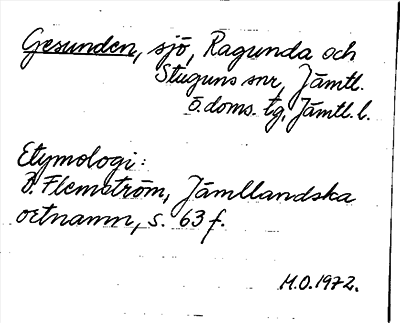 Gesunden, sjö, Ragunda och
Stuguns snr, Jämtl.
ö. doms. tg, Jämtl. l.
Etymologi:
B. Flemström, Jämtlandska
ortnamn, s. 63 f.
M.O. 1972.